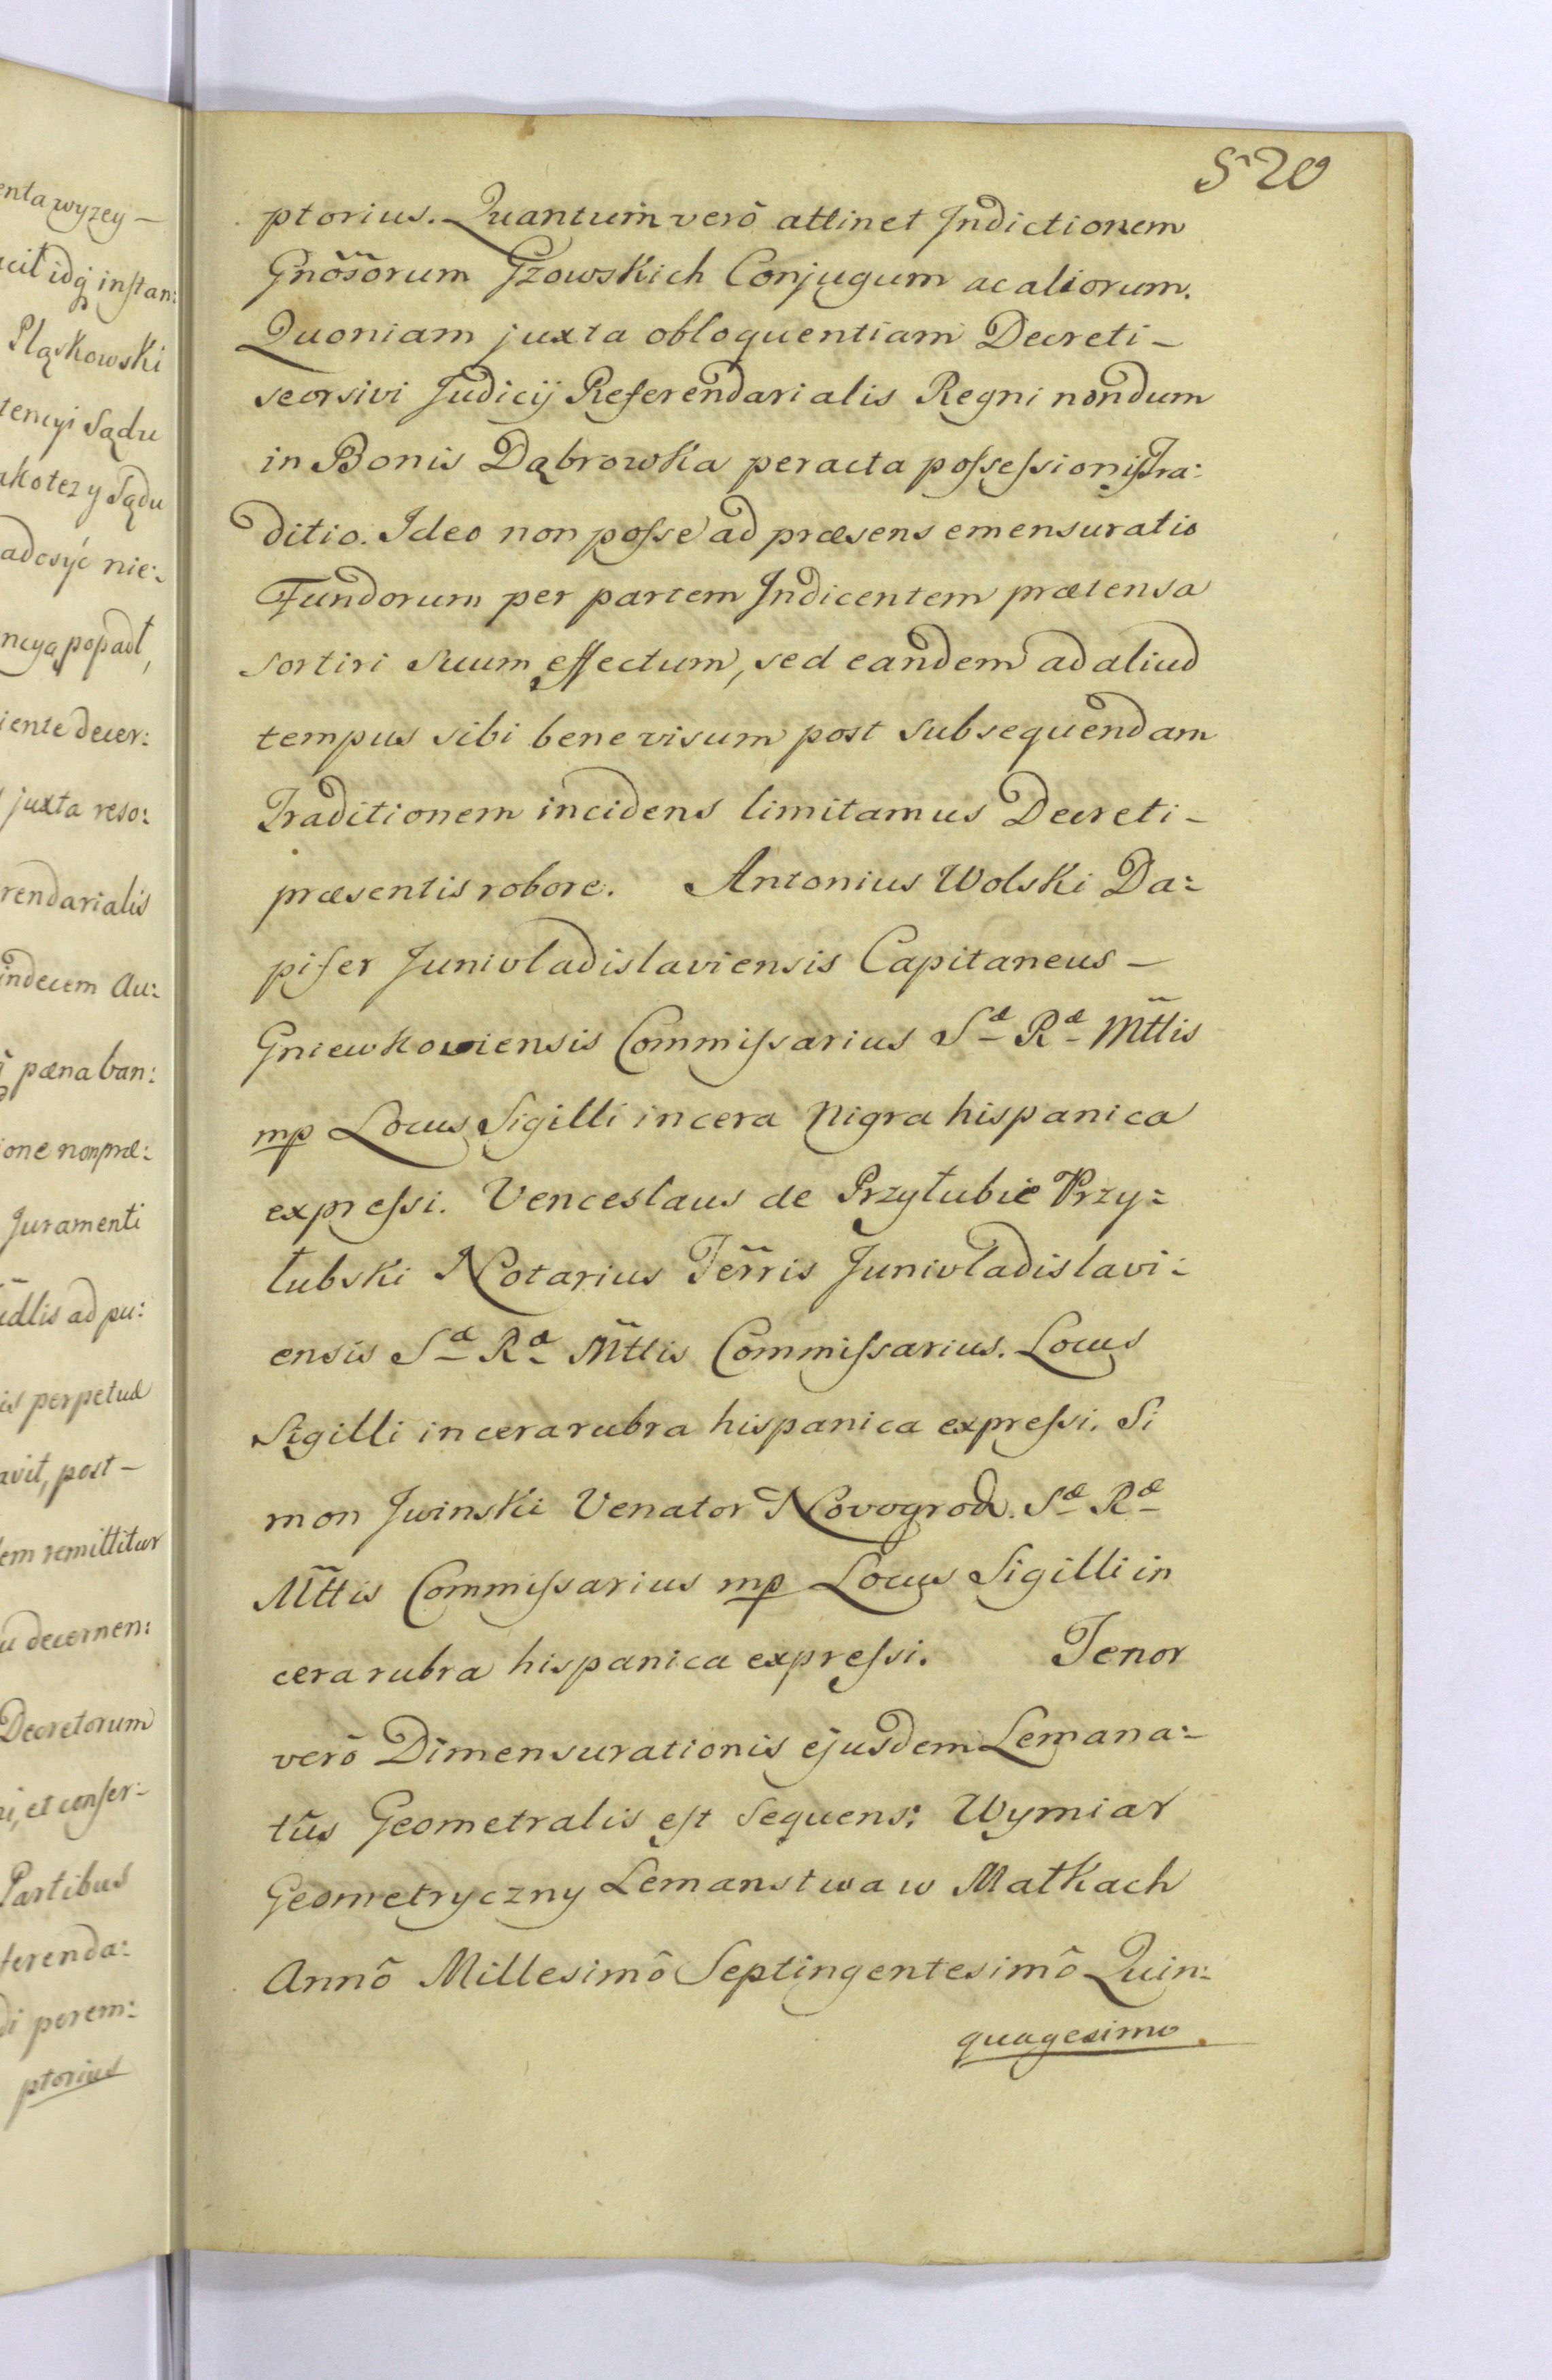 enta wyzey –
acit idq instan:
Pląskowski
tencyi Sądu
akotez y Sądu
adosyć nie:
ncyą popadł,
iente decer:
juxta reso:
rendarialis
indecem Au:
pæna ban:
ione non præ:
Juramenti
ad pu:
is perpetuæ
avit, post –
em remittitur
u decernen:
Decretorum
i, et confer:
Partibus
ferenda:
di perem:
ptorius
520
ptorius. Quantum verò attinet Indictionem
Gnõsõrum Gzowskich Conjugum ac aliorum.
Quoniam juxta obloquentiam Decreti –
seorsivi Judicij Referendarialis Regni nondum
in Bonis Dąbrowka peracta possessionis Tra:
ditio. Ideo non posse ad præsens emensuratio
Fundorum per partem Indicentem prætensa
sortiri suum effectum, sed eandem ad aliud
tempus sibi bene visum post subsequendam
Traditionem incidens limitamus Decreti –
præsentis robore. Antonius Wolski Da:
pifer Junivladislaviensis Capitaneus –
Gniewkoviensis Commissarius Sæ Ræ Mttis
mp Locus Sigilli in cera nigra hispanica
expressi. Venceslaus de Przyłubie Przy:
łubski Notarius Terris Junivladislavi:
ensis Sæ Ræ Mttis Commissarius. Locus
Sigilli in cera rubra hispanica expressi. Si
mon Jwinski Venator Novogrod. Sæ Ræ
Mttis Commissarius mp Locus Sigilli in
cera rubra hispanica expressi. Tenor
verò Dimensurationis ejusdem Lemana:
tûs Geometralis est sequens: Wymiar
Geometryczny Lemanstwa w Małkach
Annô Millesimô Septingentesimô Quin:
quagesimo